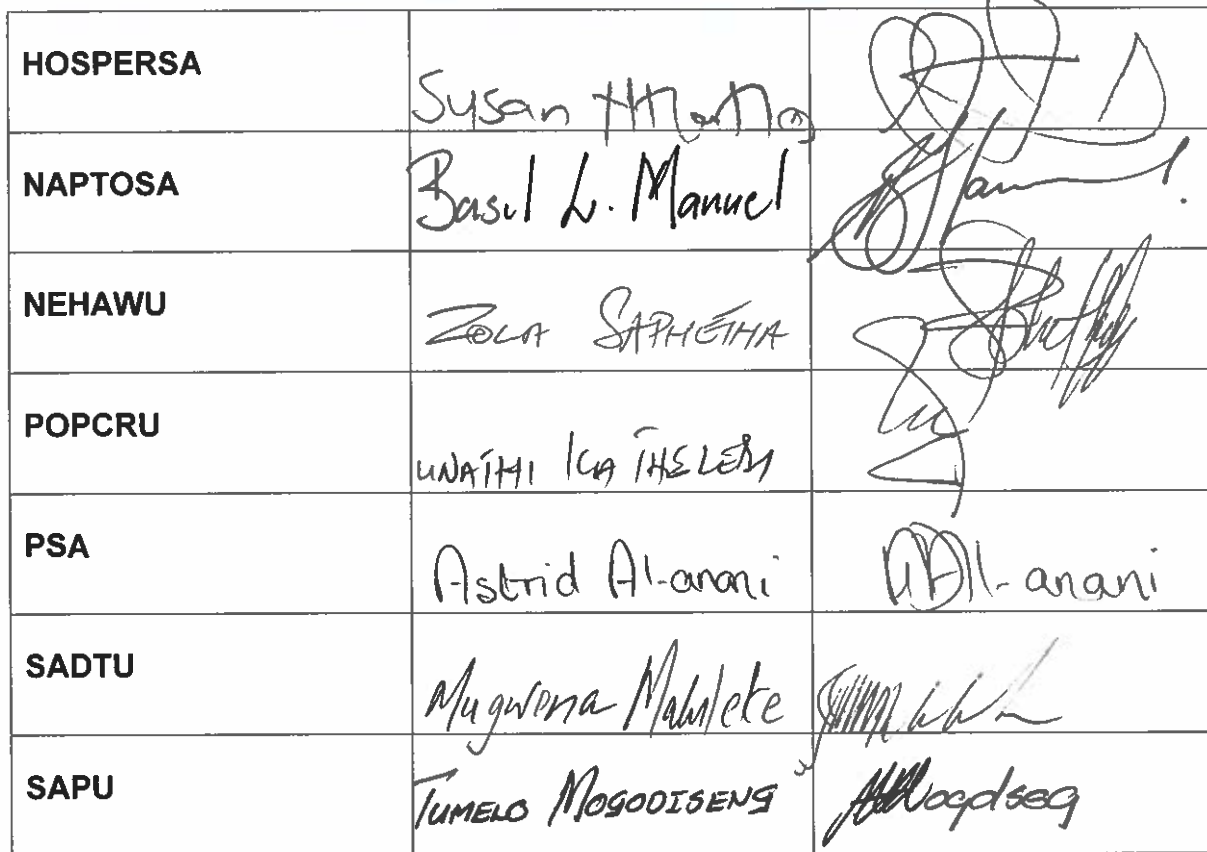 HOSPERSA Susan
NAPTOSA Basil L. Manuel
NEHAWU ZOLA SAPHETHA
POPCRU UNATHI
PSA Astrid Al-anani Al-anani
SADTU Mugwena Maluleke
SAPU TUMELO MOGODISENG